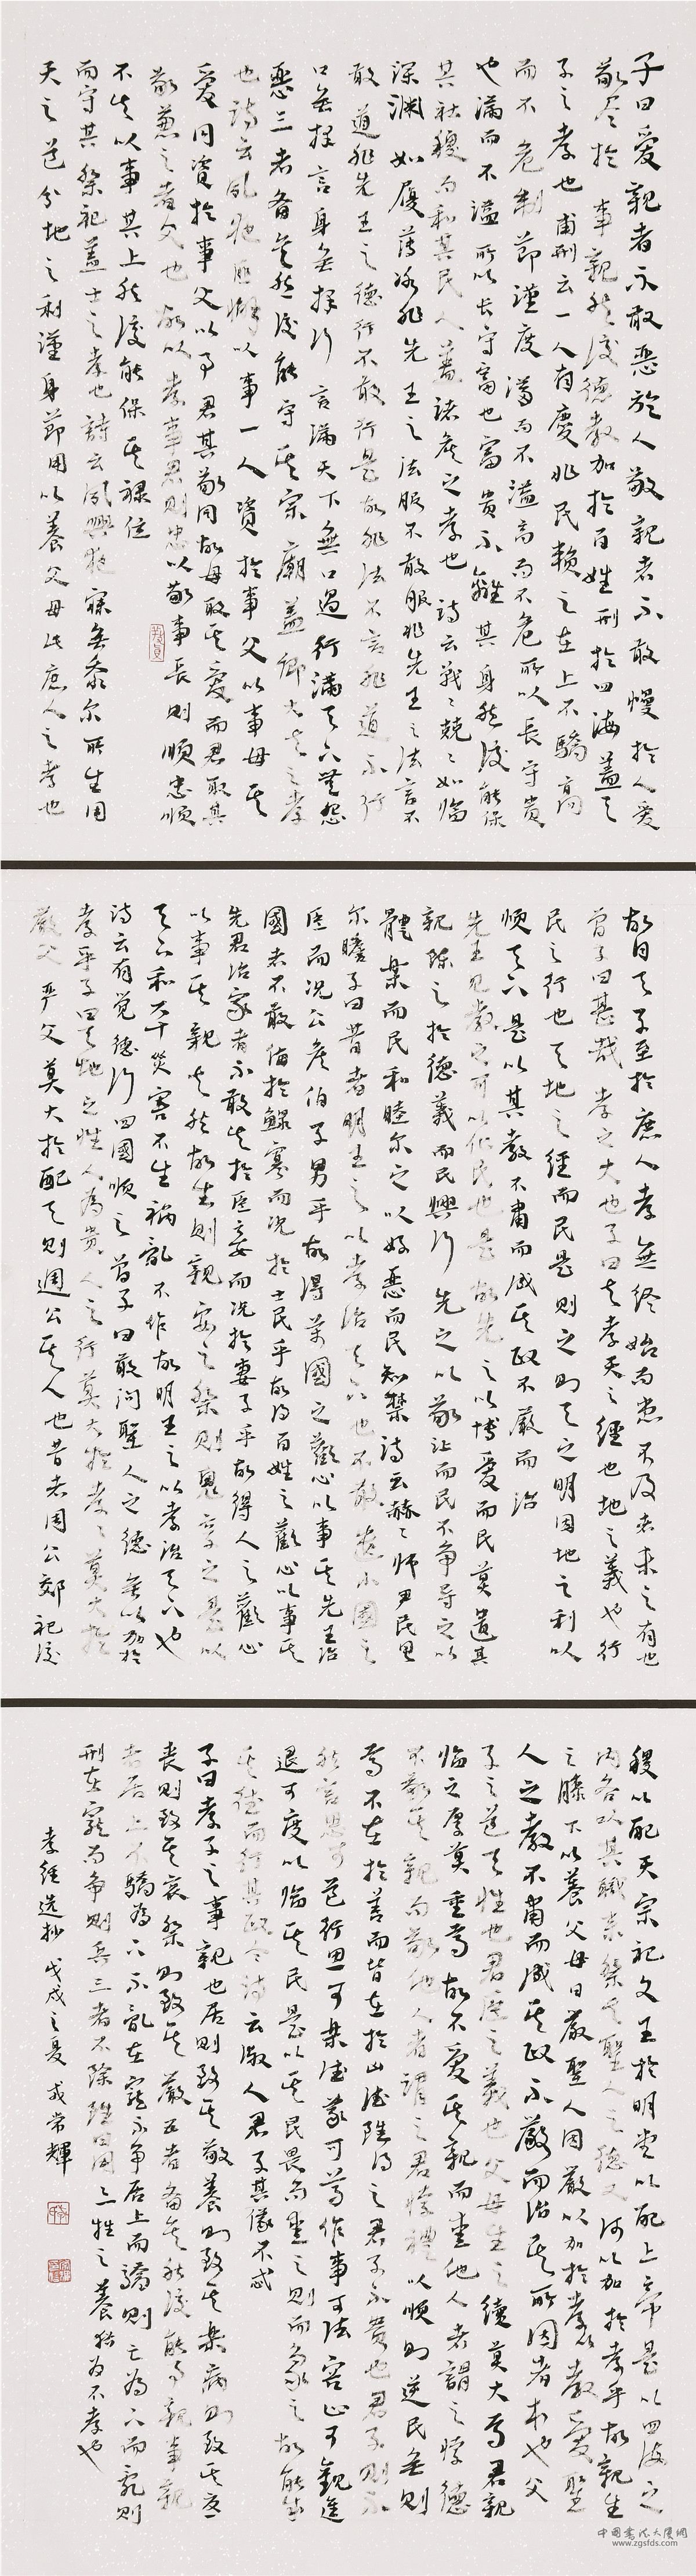 子曰愛親者不敢惡於人敬親者不敢慢於人愛
敬盡於事親然後德教加於百姓刑於四海蓋天
子之孝也甫刑云一人有慶兆民賴之在上不驕高
而不危制節謹度滿而不溢高而不危所以長守貴
也滿而不溢所以長守富也富貴不離其身然後能保
其社稷而和其民人蓋諸侯之孝也詩云戰々兢々如臨
深淵如履薄冰非先王之法服不敢服非先王之法言不
敢道非先王之德行不敢行是故非法不言非道不行
口無擇言身無擇行言滿天下無口過行滿天下無怨
惡三者備矣然後能守其宗廟蓋卿大夫之孝
也詩云夙夜匪懈以事一人資於事父以事母其
愛同資於事父以事君其敬同故母取其愛而君取其
敬兼之者父也故以孝事君則忠以敬事長則順忠順
不失以事其上然後能保其祿位
而守其祭祀蓋士之孝也詩云夙興夜寐無忝尔所生用
天之道分地之利謹身節用以養父母此庶人之孝也
故自天子至於庶人孝無終始而患不及者未之有也
曾子曰甚哉孝之大也子曰夫孝天之經也地之義也行
民之行也天地之經而民是則之則天之明因地之利以
順天下是以其教不肅而成其政不嚴而治
先王見教之可以化民也是故先之以博愛而民莫遺其
親陳之於德義而民興行先之以敬讓而民不爭導之以
禮樂而民和睦尔之以好惡而民知禁詩云赫々師尹民具
尔瞻子曰昔者明王之以孝治天下也不敢遺小國之
臣而況公侯伯子男乎故得萬國之歡心以事其先王治
國者不敢侮於鰥寡而況於士民乎故得百姓之歡心以事其
先君治家者不敢失於臣妾而況於妻子乎故得人之歡心
以事其親夫然故生則親安之祭則鬼享之是以
天下和平災害不生禍亂不作故明王之以孝治天下也
詩云有覺德行四國順之曾子曰敢問聖人之德無以加於
孝乎子曰天地之性人為貴人之行莫大於孝々莫大於
嚴父嚴父莫大於配天則周公其人也昔者周公郊祀后
稷以配天宗祀文王於明堂以配上帝是以四海之
內各以其職來祭夫聖人之德又何以加於孝乎故親生
之膝下以養父母日嚴聖人因嚴以加於孝以教愛聖
人之教不肅而成其政不嚴而治其所因者本也父
子之道天性也君臣之義也父母生之續莫大焉君親
臨之厚莫重焉故不愛其親而愛他人者謂之悖德
不敬其親而敬他人者謂之君悖禮以順則逆民無則
焉不在於善而皆在於凶德雖得之君子不貴也君子則不
然言思可道行思可樂德義可尊作事可法容止可觀進
退可度以臨其民是以其民畏而愛之則而象之故能成
其德而行其政令詩云淑人君子其儀不忒
子曰孝子之事親也居則致其敬養則致其樂病則致其憂
喪則致其哀祭則致其嚴五者備矣然後能事親事親
者居上不驕為下不亂在醜不爭居上而驕則亡為下而亂則
刑在醜而爭則兵三者不除雖日用三牲之養猶為不孝也
孝經選抄 戊戌之夏 成常輝
中國書法大廈網
www.zgsfds.com